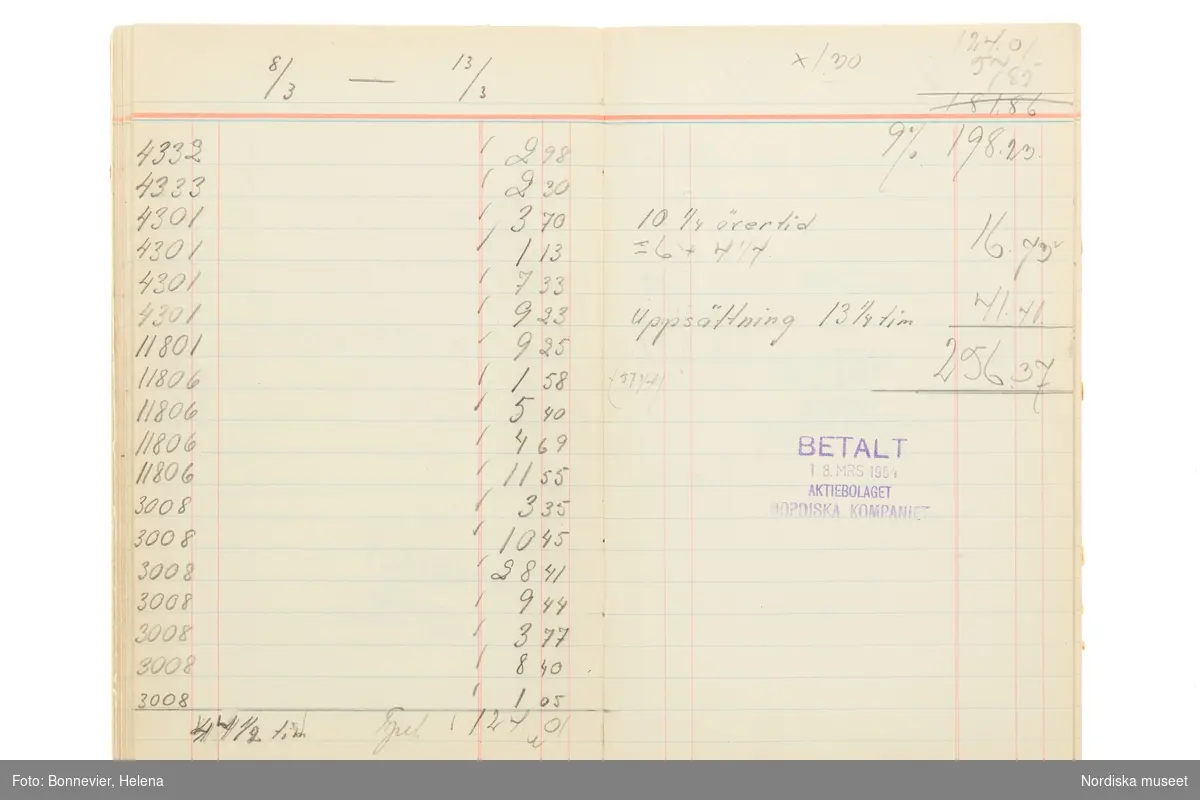 8/3 — 13/3
4332 2 98
4333 2 30
4301 3 70
4301 1 13
4301 7 33
4301 9 23
11801 9 25
11806 1 58
11806 5 40
11806 4 69
11806 11 55
3008 3 35
3008 10 45
3008 28 41
3008 9 44
3008 3 77
3008 8 40
3008 1 05
1/2 tim 124 01
124.01
57 85
181.86
9% 198.23
10 1/4 övertid 16.73
= 6 + 4 1/4
Uppsättning 13 1/4 tim 41.41
256.37
BETALT
1 8. MRS 1954
AKTIEBOLAGET
NORDISKA KOMPANIET
Foto: Bonnevier, Helena
Nordiska museet